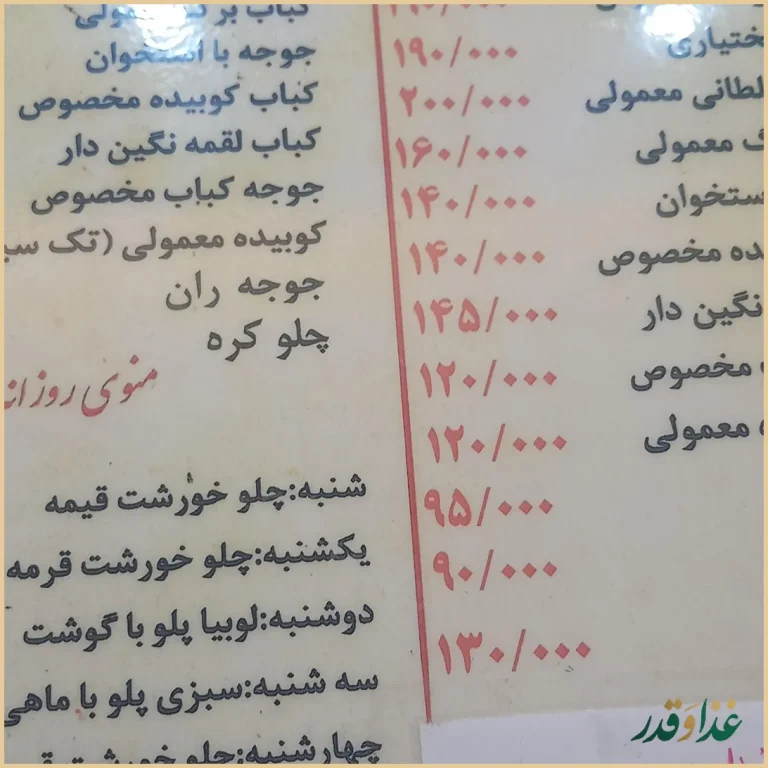 ختیاری
۱۹۰/۰۰۰
لطانی معمولی
۲۰۰/۰۰۰
گ معمولی
۱۶۰/۰۰۰
ستخوان
۱۴۰/۰۰۰
ده مخصوص
۱۴۰/۰۰۰
نگین دار
۱۴۵/۰۰۰
مخصوص
۱۲۰/۰۰۰
معمولی
۱۲۰/۰۰۰
۹۵/۰۰۰
۹۰/۰۰۰
۱۳۰/۰۰۰
کباب
جوجه با استخوان
کباب کوبیده مخصوص
کباب لقمه نگین دار
جوجه کباب مخصوص
کوبیده معمولی (تک سی
جوجه ران
چلو کره
منوی روزان
شنبه:چلو خورشت قیمه
یکشنبه:چلو خورشت قرمه
دوشنبه:لوبیا پلو با گوشت
سه شنبه:سبزی پلو با ماهی
چهارشنبه:چلو خورشت
غذا و قدر